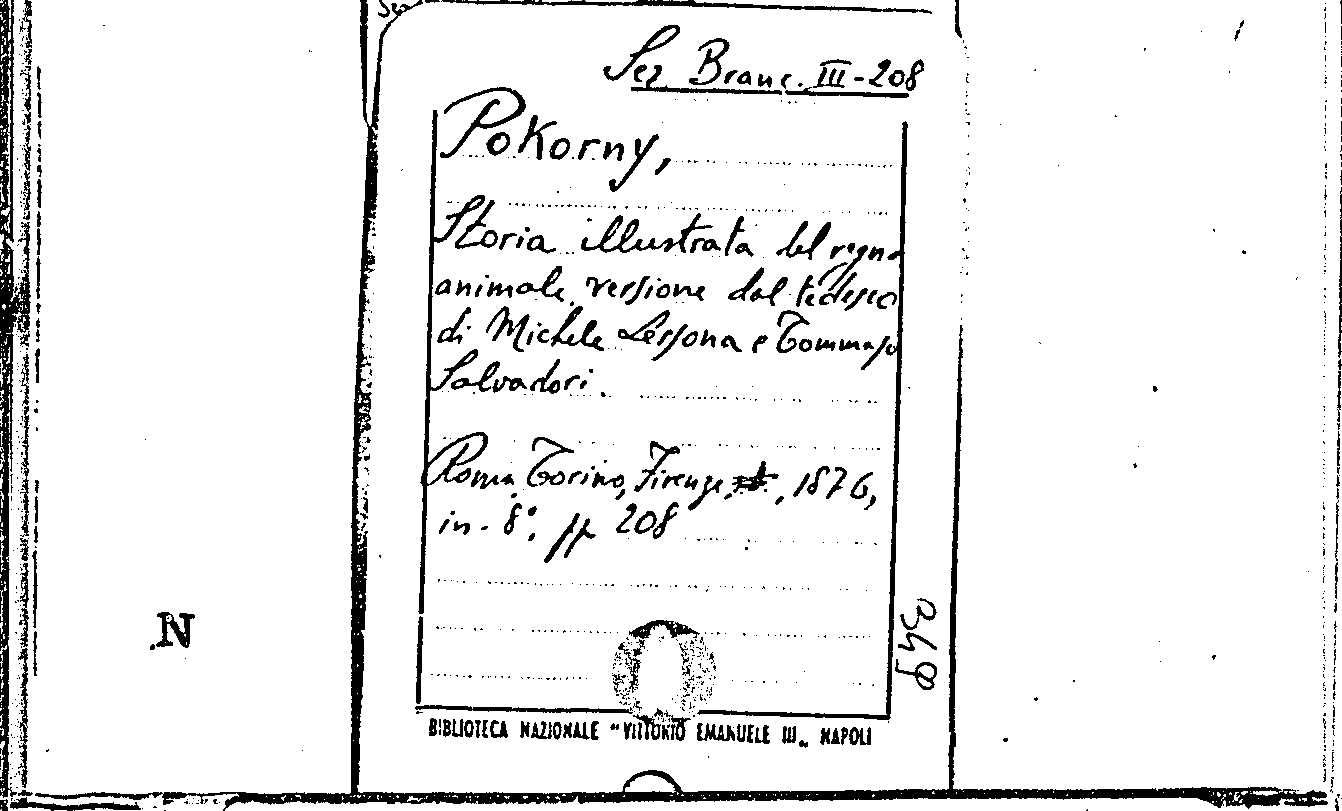 Sez. Branc. III-208
Pokorny,
Storia illustrata del regno
animale, versione dal tedesco
di Michele Lessona e Tommaso
Salvadori.
Roma, Torino, Firenze, 1876,
in-8°, pp 208
BIBLIOTECA NAZIONALE "VITTORIO EMANUELE III„ NAPOLI
N